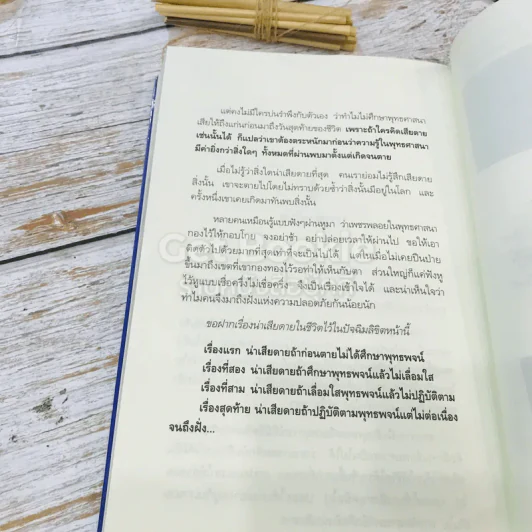 แต่คงไม่มีใครบ่นรำพึงกับตัวเอง ว่าทำไมไม่ศึกษาพุทธศาสนา
เสียให้ถึงแก่นก่อนมาถึงวันสุดท้ายของชีวิต เพราะถ้าใครคิดเสียดาย
เช่นนั้นได้ ก็แปลว่าเขาต้องตระหนักมาก่อนว่าความรู้ในพุทธศาสนา
มีค่ายิ่งกว่าสิ่งใดๆ ทั้งหมดที่ผ่านพบมาตั้งแต่เกิดจนตาย
เมื่อไม่รู้ว่าสิ่งใดน่าเสียดายที่สุด คนเราย่อมไม่รู้สึกเสียดาย
สิ่งนั้น เขาจะตายไปโดยไม่ทราบด้วยซ้ำว่าสิ่งนั้นมีอยู่ในโลก และ
ครั้งหนึ่งเขาเคยเกิดมาทันพบสิ่งนั้น
หลายคนเหมือนรู้แบบฟังๆผ่านหูมา ว่าเพชรพลอยในพุทธศาสนา
กองไว้ให้กอบโกย จงอย่าช้า อย่าปล่อยเวลาให้ผ่านไป ขอให้เอา
ติดตัวไปด้วยมากที่สุดเท่าที่จะเป็นไปได้ แต่ในเมื่อไม่เคยปีนป่าย
ขึ้นมาถึงเขตที่เขากองทองไว้รอทำให้เห็นกับตา ส่วนใหญ่ก็แค่ฟังหู
ไว้หูแบบเชื่อครึ่งไม่เชื่อครึ่ง จึงเป็นเรื่องเข้าใจได้ และน่าเห็นใจว่า
ทำไมคนจึงมาถึงฝั่งแห่งความปลอดภัยกันน้อยนัก
ขอฝากเรื่องน่าเสียดายในชีวิตไว้ในปัจฉิมลิขิตหน้านี้
เรื่องแรก น่าเสียดายถ้าก่อนตายไม่ได้ศึกษาพุทธพจน์
เรื่องที่สอง น่าเสียดายถ้าศึกษาพุทธพจน์แล้วไม่เลื่อมใส
เรื่องที่สาม น่าเสียดายถ้าเลื่อมใสพุทธพจน์แล้วไม่ปฏิบัติตาม
เรื่องสุดท้าย น่าเสียดายถ้าปฏิบัติตามพุทธพจน์แต่ไม่ต่อเนื่อง
จนถึงฝั่ง...